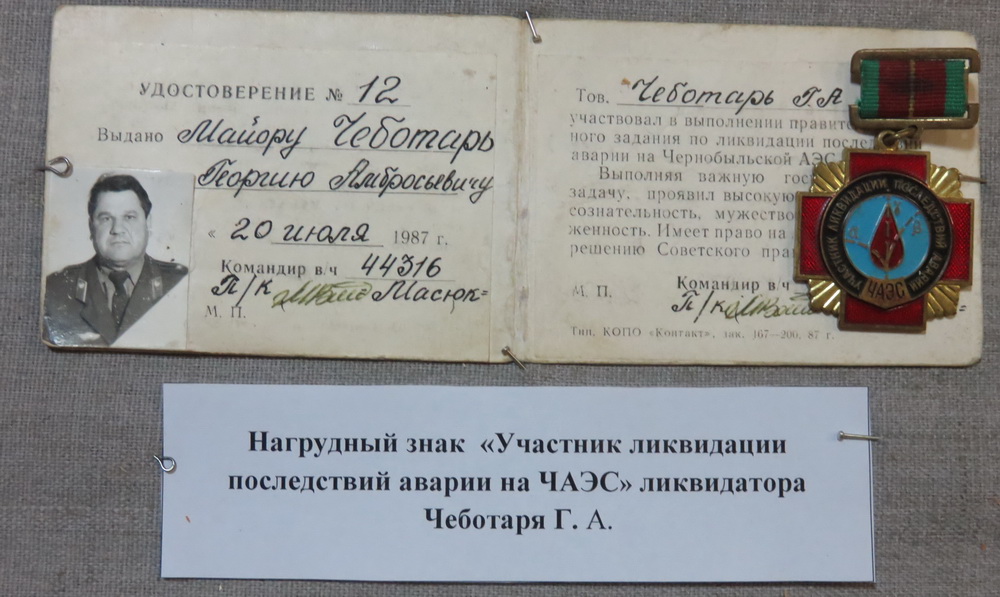 УДОСТОВЕРЕНИЕ № 12
Выдано Майору Чеботарь
Георгию Амбросьевичу
« 20 июля 1987 г.
Командир в/ч 44316
П/к Масюк
М. П.
Тов. Чеботарь Г. А
участвовал в выполнении правите
ного задания по ликвидации послед
аварии на Чернобыльской АЭС
Выполняя важную гос
задачу, проявил высокую
сознательность, мужество
женность. Имеет право на
решению Советского пра
Командир в/ч
М. П. П/к
Тип. КОПО «Контакт», зак. 167—200, 87 г.
УЧАСТНИК ЛИКВИДАЦИИ ПОСЛЕДСТВИЙ АВАРИИ
α γ β
ЧАЭС
Нагрудный знак «Участник ликвидации
последствий аварии на ЧАЭС» ликвидатора
Чеботаря Г. А.